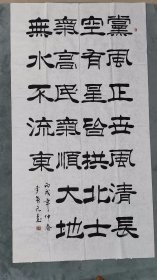 黨風正世風清長
空有星皆拱北士
氣高民氣順大地
無水不流東
丙戌年仲春